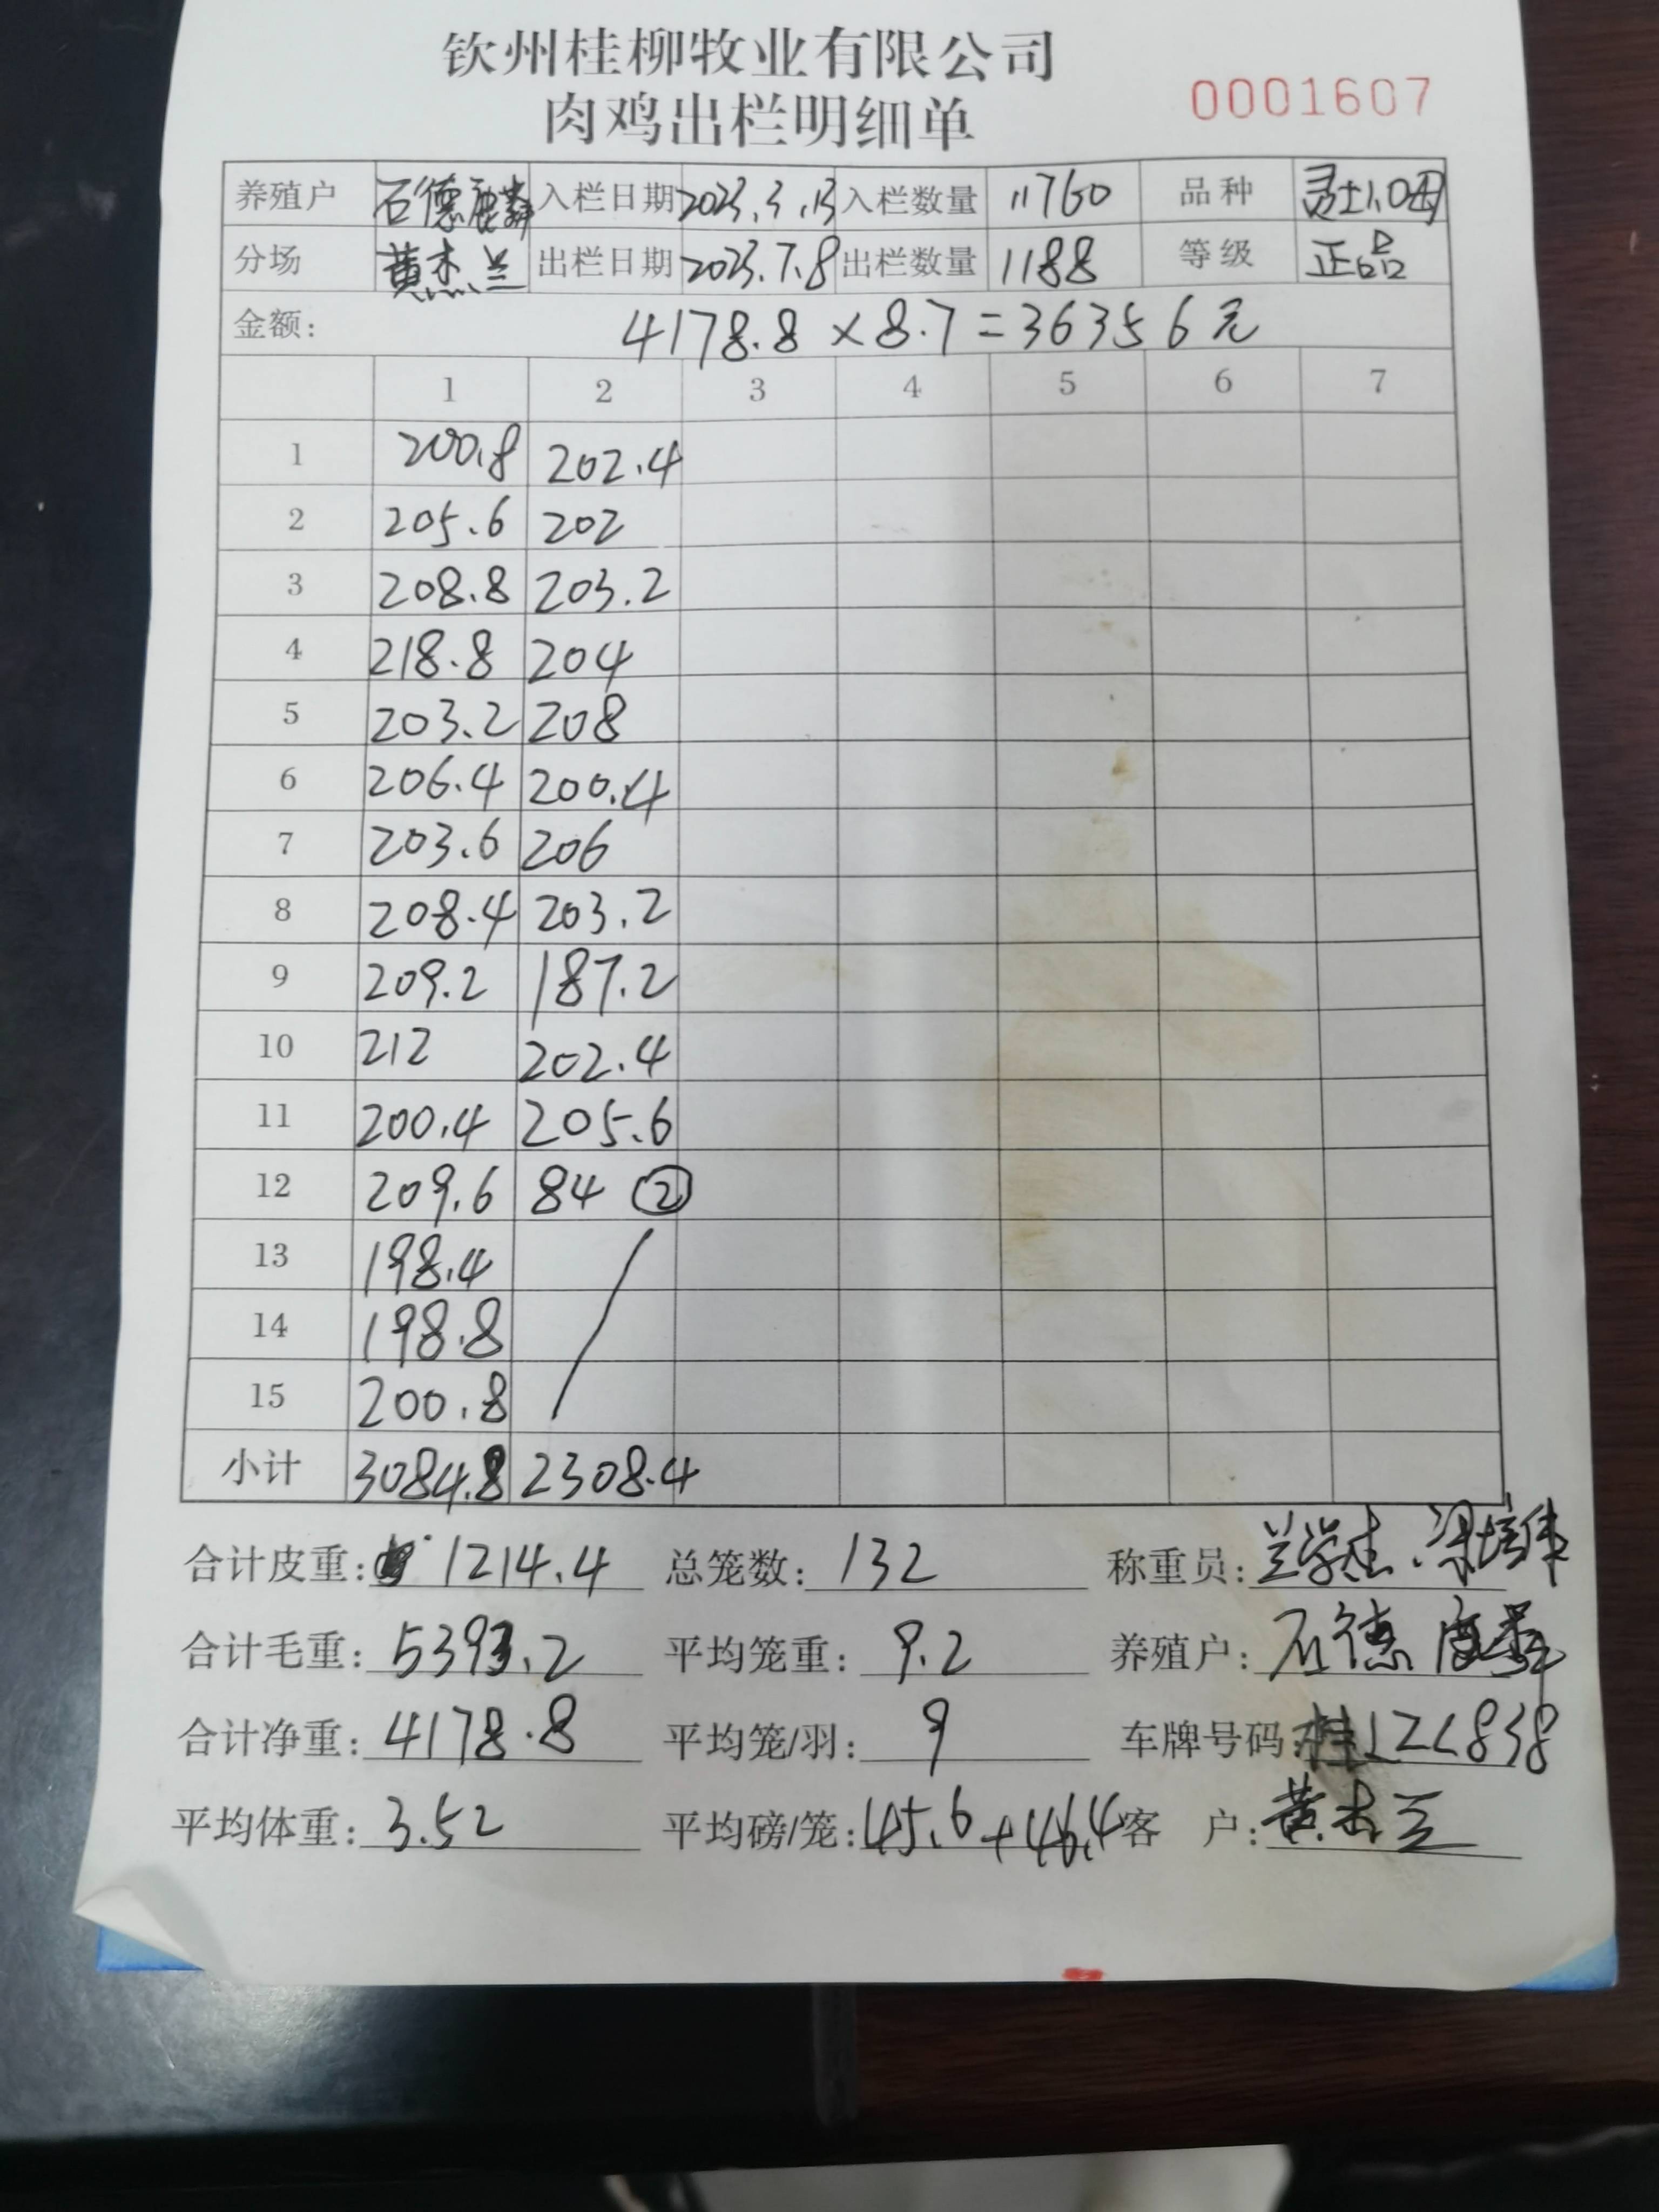 钦州桂柳牧业有限公司
肉鸡出栏明细单
0001607
养殖户 石德麟 入栏日期 2023.3.13 入栏数量 11760 品种 灵土1.0母
分场 黄杰兰 出栏日期 2023.7.8 出栏数量 1188 等级 正品
金额: 4178.8×8.7=36356元
1 2 3 4 5 6 7
1 200.8 202.4
2 205.6 202
3 208.8 203.2
4 218.8 204
5 203.2 208
6 206.4 200.4
7 203.6 206
8 208.4 203.2
9 209.2 187.2
10 212 202.4
11 200.4 205.6
12 209.6 84 ②
13 198.4
14 198.8
15 200.8
小计 3084.8 2308.4
合计皮重: 1214.4 总笼数: 132 称重员:
合计毛重: 5393.2 平均笼重: 9.2 养殖户: 石德麟
合计净重: 4178.8 平均笼/羽: 9 车牌号码:
平均体重: 3.52 平均磅/笼: 45.6+46.4 客 户: 黄杰兰